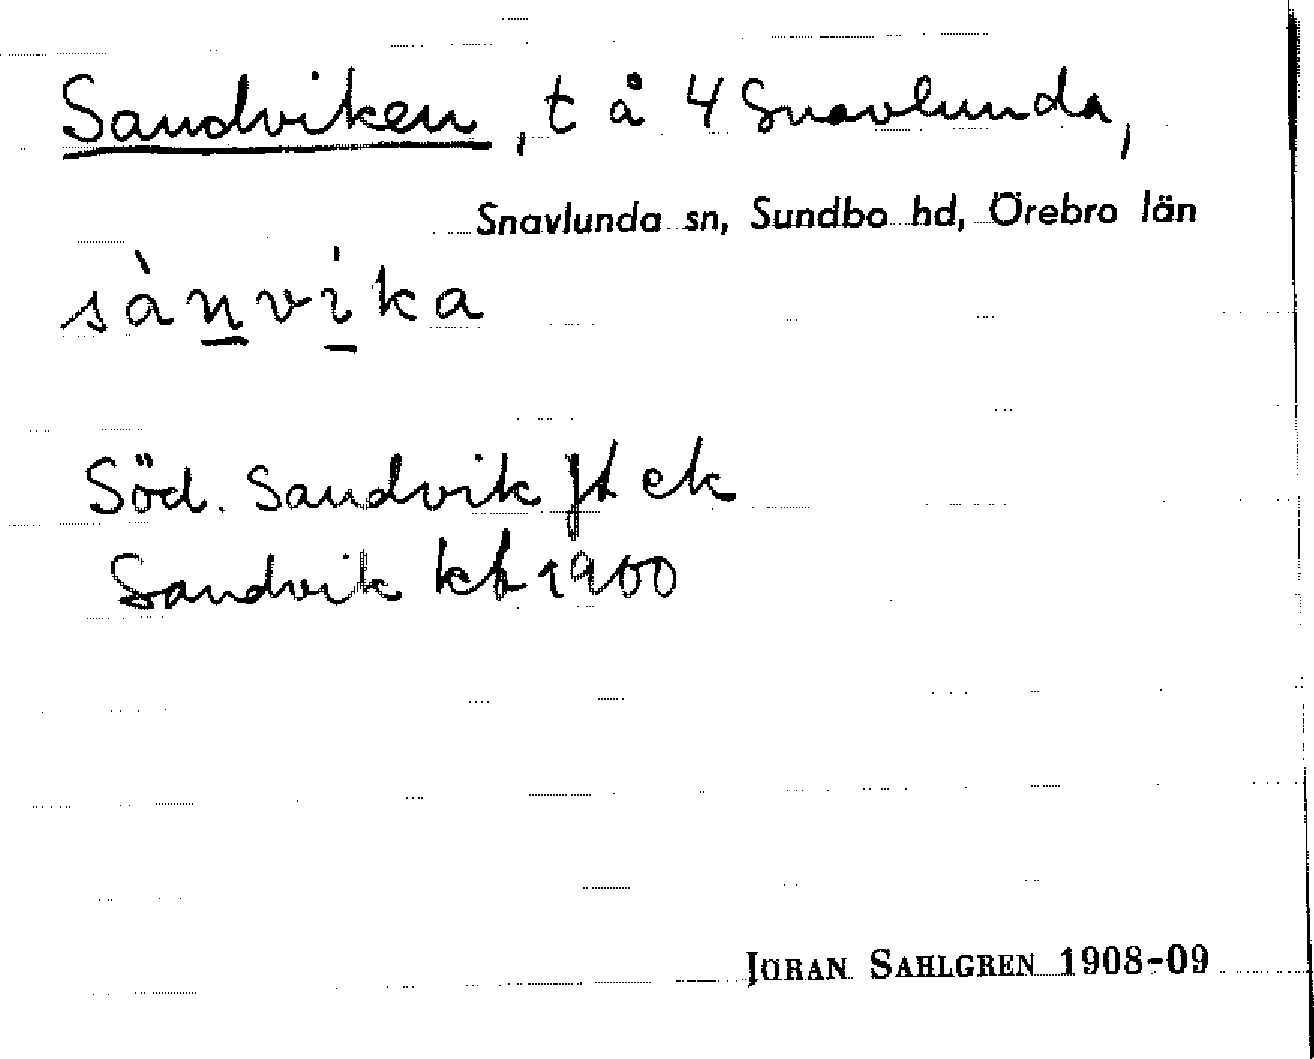 Sandviken, t å 4 Snavlunda,
Snavlunda sn, Sundbo hd, Örebro län
sànvika
Söd. Sandvik jt ek
Sandvik kb 1900
JÖRAN SAHLGREN 1908-09